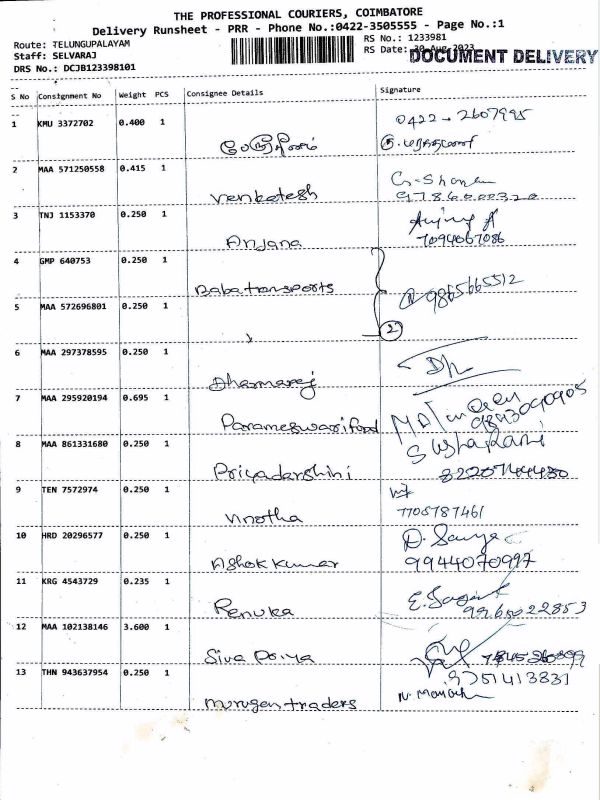 THE PROFESSIONAL COURIERS, COIMBATORE
Delivery Runsheet - PRR - Phone No.:0422-3505555 - Page No.:1
Route: TELUNGUPALAYAM
RS No.: 1233981
Staff: SELVARAJ
RS Date: 30-Aug-2023
DOCUMENT DELIVERY
DRS No.: DCJB123398101
S No Consignment No Weight PCS Consignee Details Signature
1 KMU 3372702 0.400 1 0422 - 2607995
2 MAA 571250558 0.415 1 Venkatesh
3 TNJ 1153370 0.250 1 Anjana 7094067086
4 GMP 640753 0.250 1 Baba transports 9865665512
5 MAA 572696801 0.250 1 2
6 MAA 297378595 0.250 1 Dharmaraj
7 MAA 295920194 0.695 1 Parameswari food
8 MAA 861331680 0.250 1 Priyadarshini
9 TEN 7572974 0.250 1 Vinotha 7708787461
10 HRD 20296577 0.250 1 Ashok kumar 9944070997
11 KRG 4543729 0.235 1 Renuka
12 MAA 102138146 3.600 1 Siva Priya
13 THN 943637954 0.250 1 murugan traders 9751413831